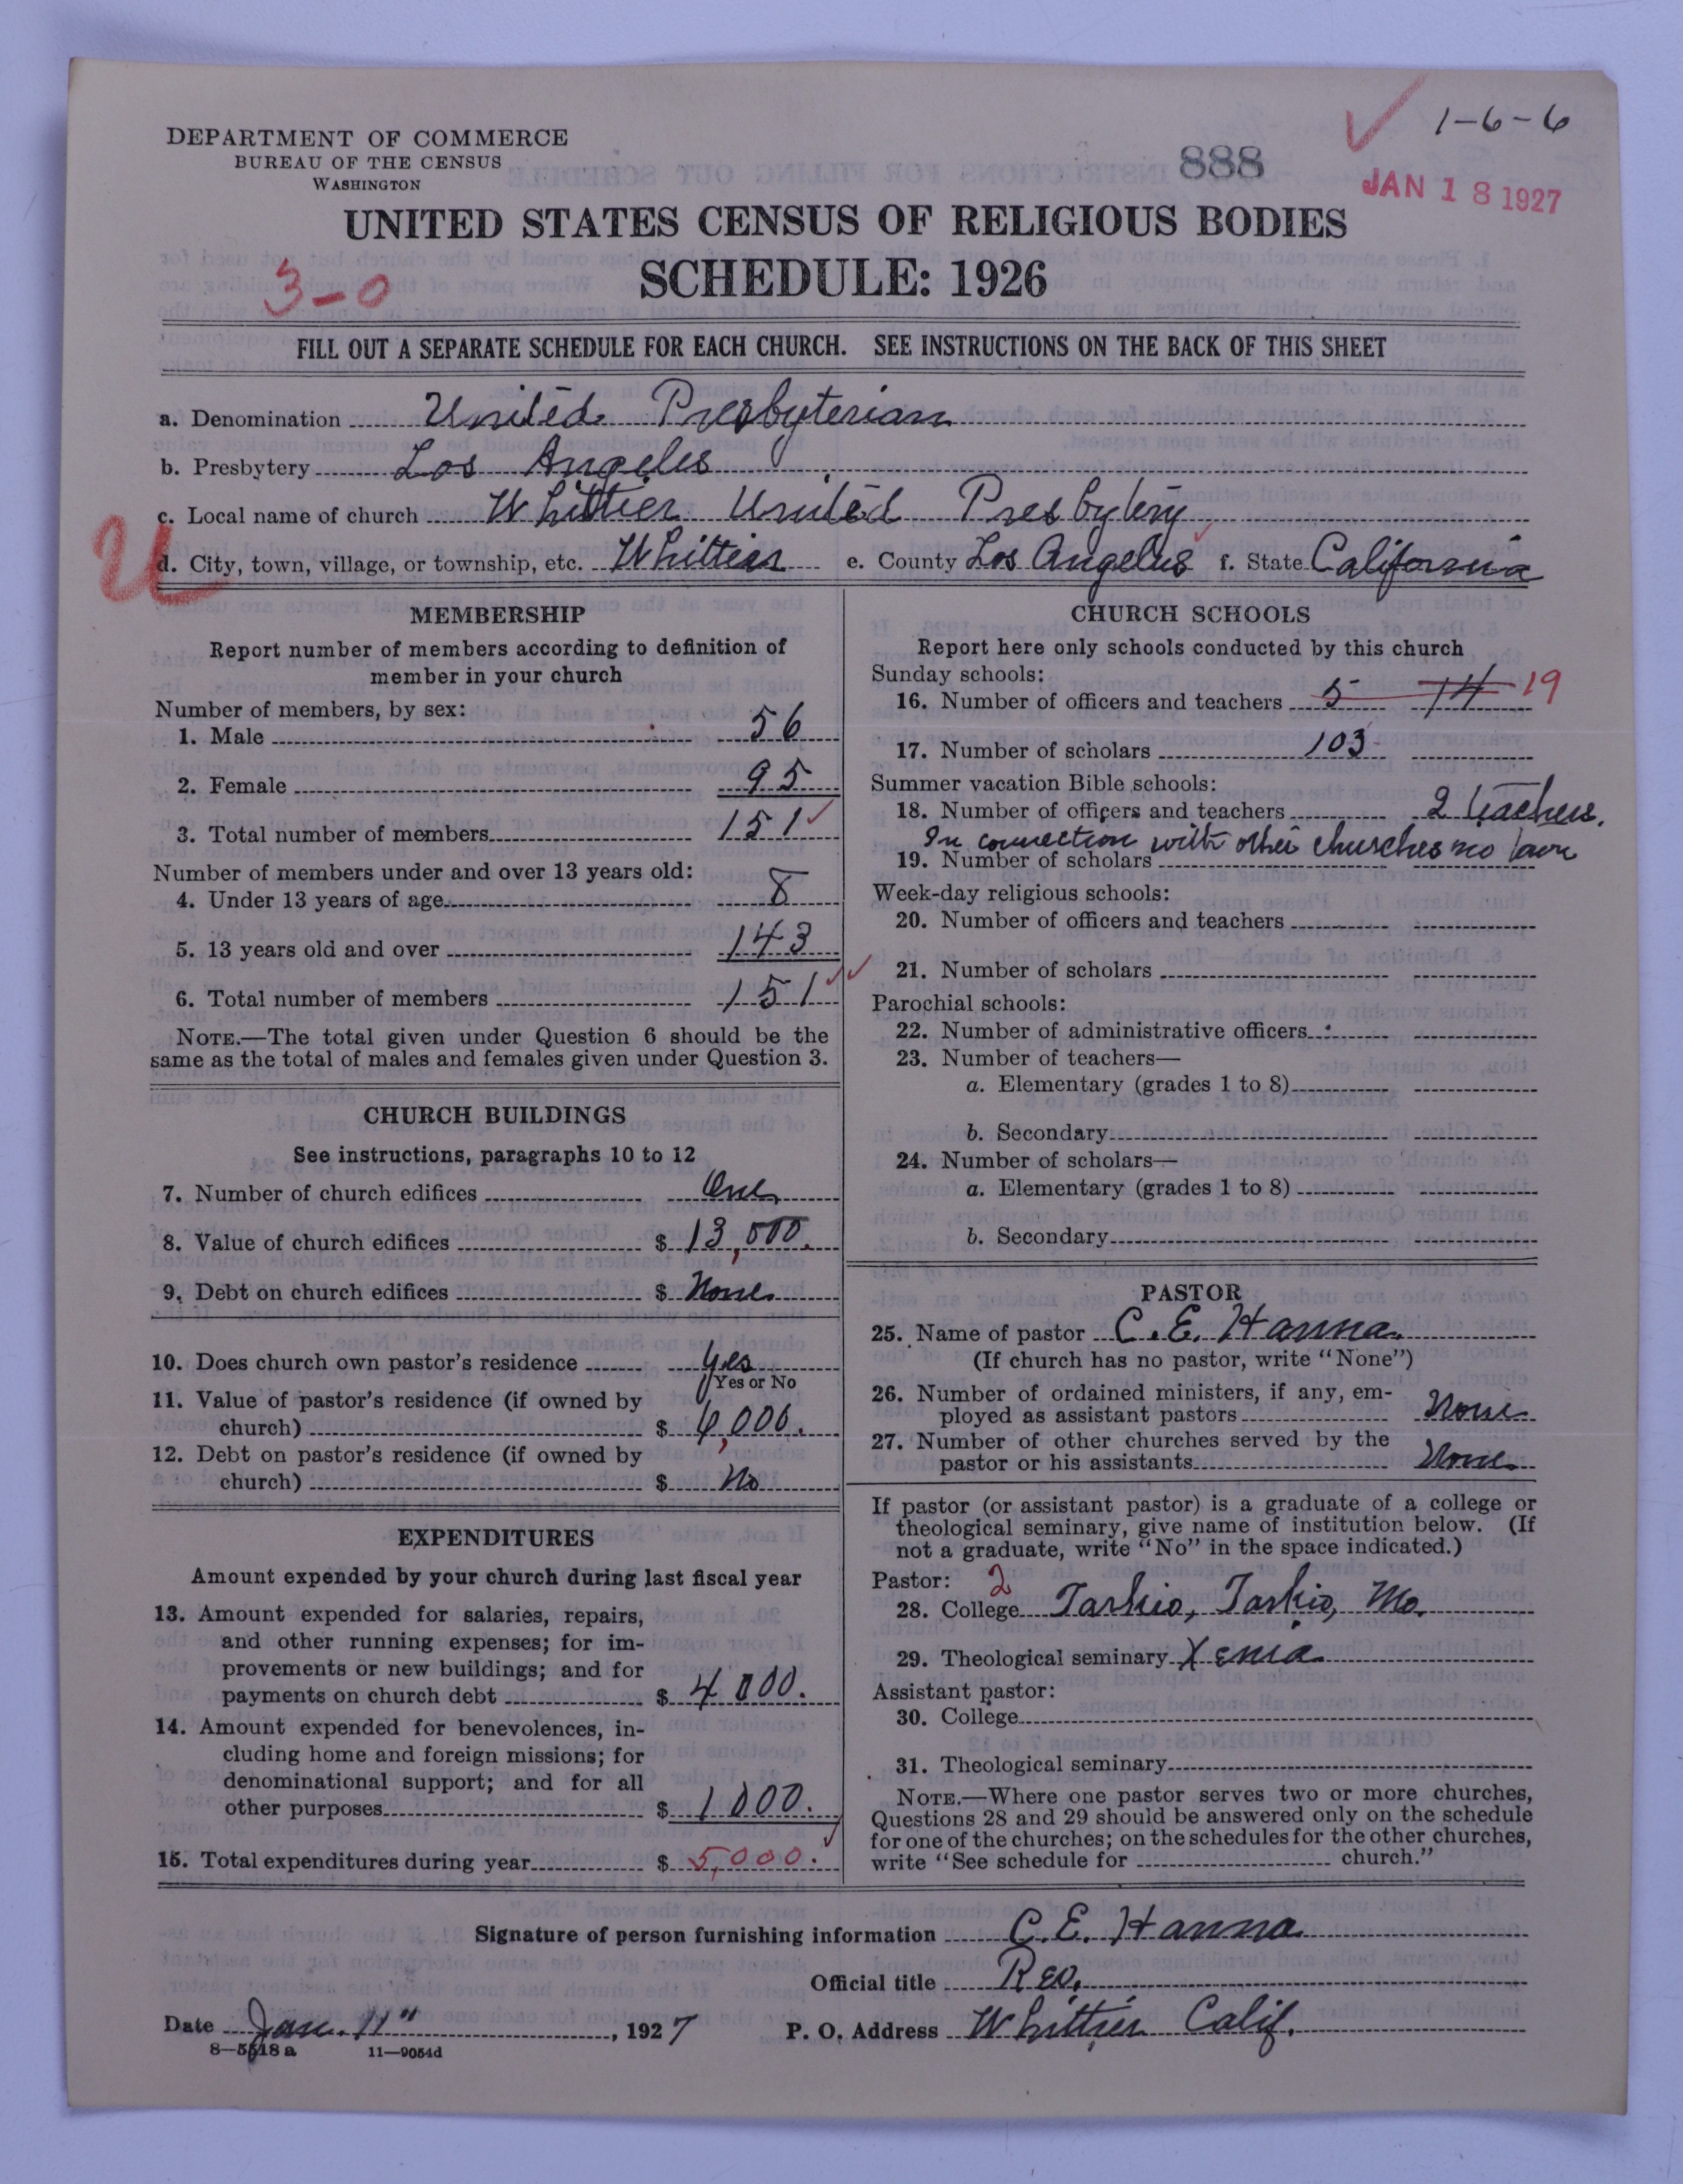 DEPARTMENT OF COMMERCE
BUREAU OF THE CENSUS
WASHINGTON
888
1-6-6
JAN 18 1927
UNITED STATES CENSUS OF RELIGIOUS BODIES
SCHEDULE: 1926
3-0
FILL OUT A SEPARATE SCHEDULE FOR EACH CHURCH. SEE INSTRUCTIONS ON THE BACK OF THIS SHEET
a. Denomination United Presbyterian
b. Presbytery Los Angeles
c. Local name of church Whittier United Presbytery
U
d. City, town, village, or township, etc. Whittier e. County Los Angelus f. State California
MEMBERSHIP
Report number of members according to definition of
member in your church
Number of members, by sex:
1. Male 56
2. Female 95
3. Total number of members 151
Number of members under and over 13 years old:
4. Under 13 years of age 8
5. 13 years old and over 143
6. Total number of members 151
NOTE.—The total given under Question 6 should be the
same as the total of males and females given under Question 3.
CHURCH BUILDINGS
See instructions, paragraphs 10 to 12
7. Number of church edifices One
8. Value of church edifices $ 13,000.
9. Debt on church edifices $ None
10. Does church own pastor's residence Yes
Yes or No
11. Value of pastor's residence (if owned by
church) $ 6,000.
12. Debt on pastor's residence (if owned by
church) $ No
EXPENDITURES
Amount expended by your church during last fiscal year
13. Amount expended for salaries, repairs,
and other running expenses; for im-
provements or new buildings; and for
payments on church debt $ 4000.
14. Amount expended for benevolences, in-
cluding home and foreign missions; for
denominational support; and for all
other purposes $ 1000.
15. Total expenditures during year $ 5,000.
CHURCH SCHOOLS
Report here only schools conducted by this church
Sunday schools:
16. Number of officers and teachers 5 14 19
17. Number of scholars 103
Summer vacation Bible schools:
18. Number of officers and teachers 2 teachers.
In connection with other churches no
19. Number of scholars
Week-day religious schools:
20. Number of officers and teachers
21. Number of scholars
Parochial schools:
22. Number of administrative officers
23. Number of teachers—
a. Elementary (grades 1 to 8)
b. Secondary
24. Number of scholars—
a. Elementary (grades 1 to 8)
b. Secondary
PASTOR
25. Name of pastor C. E. Hanna
(If church has no pastor, write "None")
26. Number of ordained ministers, if any, em-
ployed as assistant pastors None
27. Number of other churches served by the
pastor or his assistants None
If pastor (or assistant pastor) is a graduate of a college or
theological seminary, give name of institution below. (If
not a graduate, write "No" in the space indicated.)
Pastor: 2
28. College Tarkio, Tarkio, Mo.
29. Theological seminary Xenia
Assistant pastor:
30. College
31. Theological seminary
NOTE.—Where one pastor serves two or more churches,
Questions 28 and 29 should be answered only on the schedule
for one of the churches; on the schedules for the other churches,
write "See schedule for church."
Signature of person furnishing information C. E. Hanna
Official title Rev.
Date Jan. 11", 1927 P. O. Address Whittier Calif.
8—5518a 11—9054d